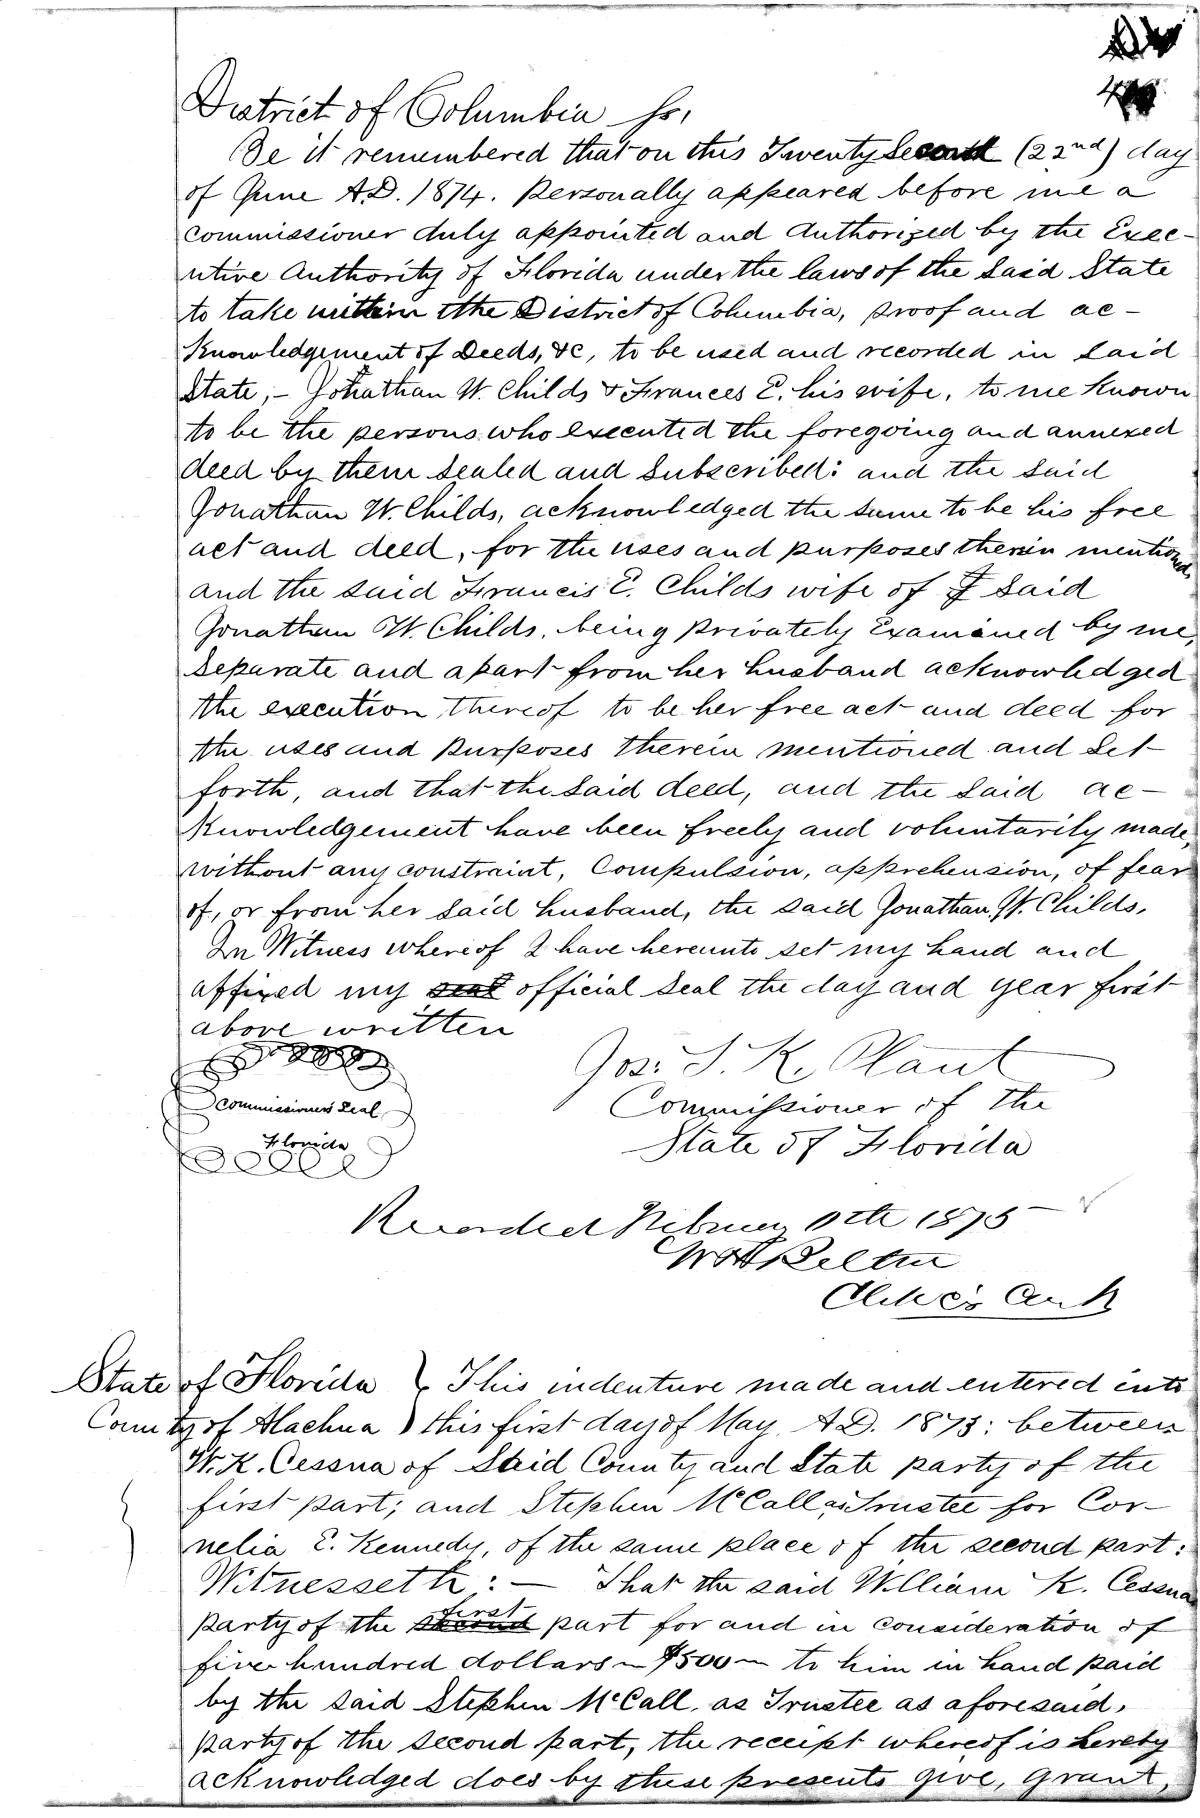 District of Columbia Ss,
Be it remembered that on this Twenty Second (22nd) day
of June A.D. 1874. Personally appeared before me a
Commissioner duly appointed and Authorized by the Exec-
utive Authority of Florida under the laws of the Said State
to take within the District of Columbia, proof and ac-
knowledgement of Deeds, &c, to be used and recorded in Said
State, - Jonathan W. Childs & Frances E. his wife, to me Known
to be the persons who executed the foregoing and annexed
deed by them Sealed and Subscribed: and the Said
Jonathan W. Childs, acknowledged the same to be his free
act and deed, for the uses and purposes therein mentioned,
and the said Francis E. Childs wife of Said
Jonathan W. Childs, being privately Examined by me,
Separate and apart from her husband acknowledged
the execution thereof to be her free act and deed for
the uses and purposes therein mentioned and Set
forth, and that the Said deed, and the Said ac-
knowledgement have been freely and voluntarily made,
without any constraint, Compulsion, apprehension, of fear
of, or from her Said husband, the said Jonathan W. Childs.
In Witness whereof I have hereunto set my hand and
affixed my seal official Seal the day and year first
above written
Jos: S. K. Plant
Commissioner's Seal
Commissioner of the
Florida
State of Florida
Recorded February 11th 1875
Clk
State of Florida } This indenture made and entered into
County of Alachua } this first day of May A.D. 1873: between
W. K. Cessna of Said County and State party of the
first part; and Stephen McCall, as Trustee for Cor-
nelia E. Kennedy, of the same place of the second part:
Witnesseth: - That the said William K. Cessna
party of the second first part for and in consideration of
five hundred dollars - $500 - to him in hand paid
by the said Stephen McCall, as Trustee as aforesaid,
party of the second part, the receipt whereof is hereby
acknowledged does by these presents give, grant,